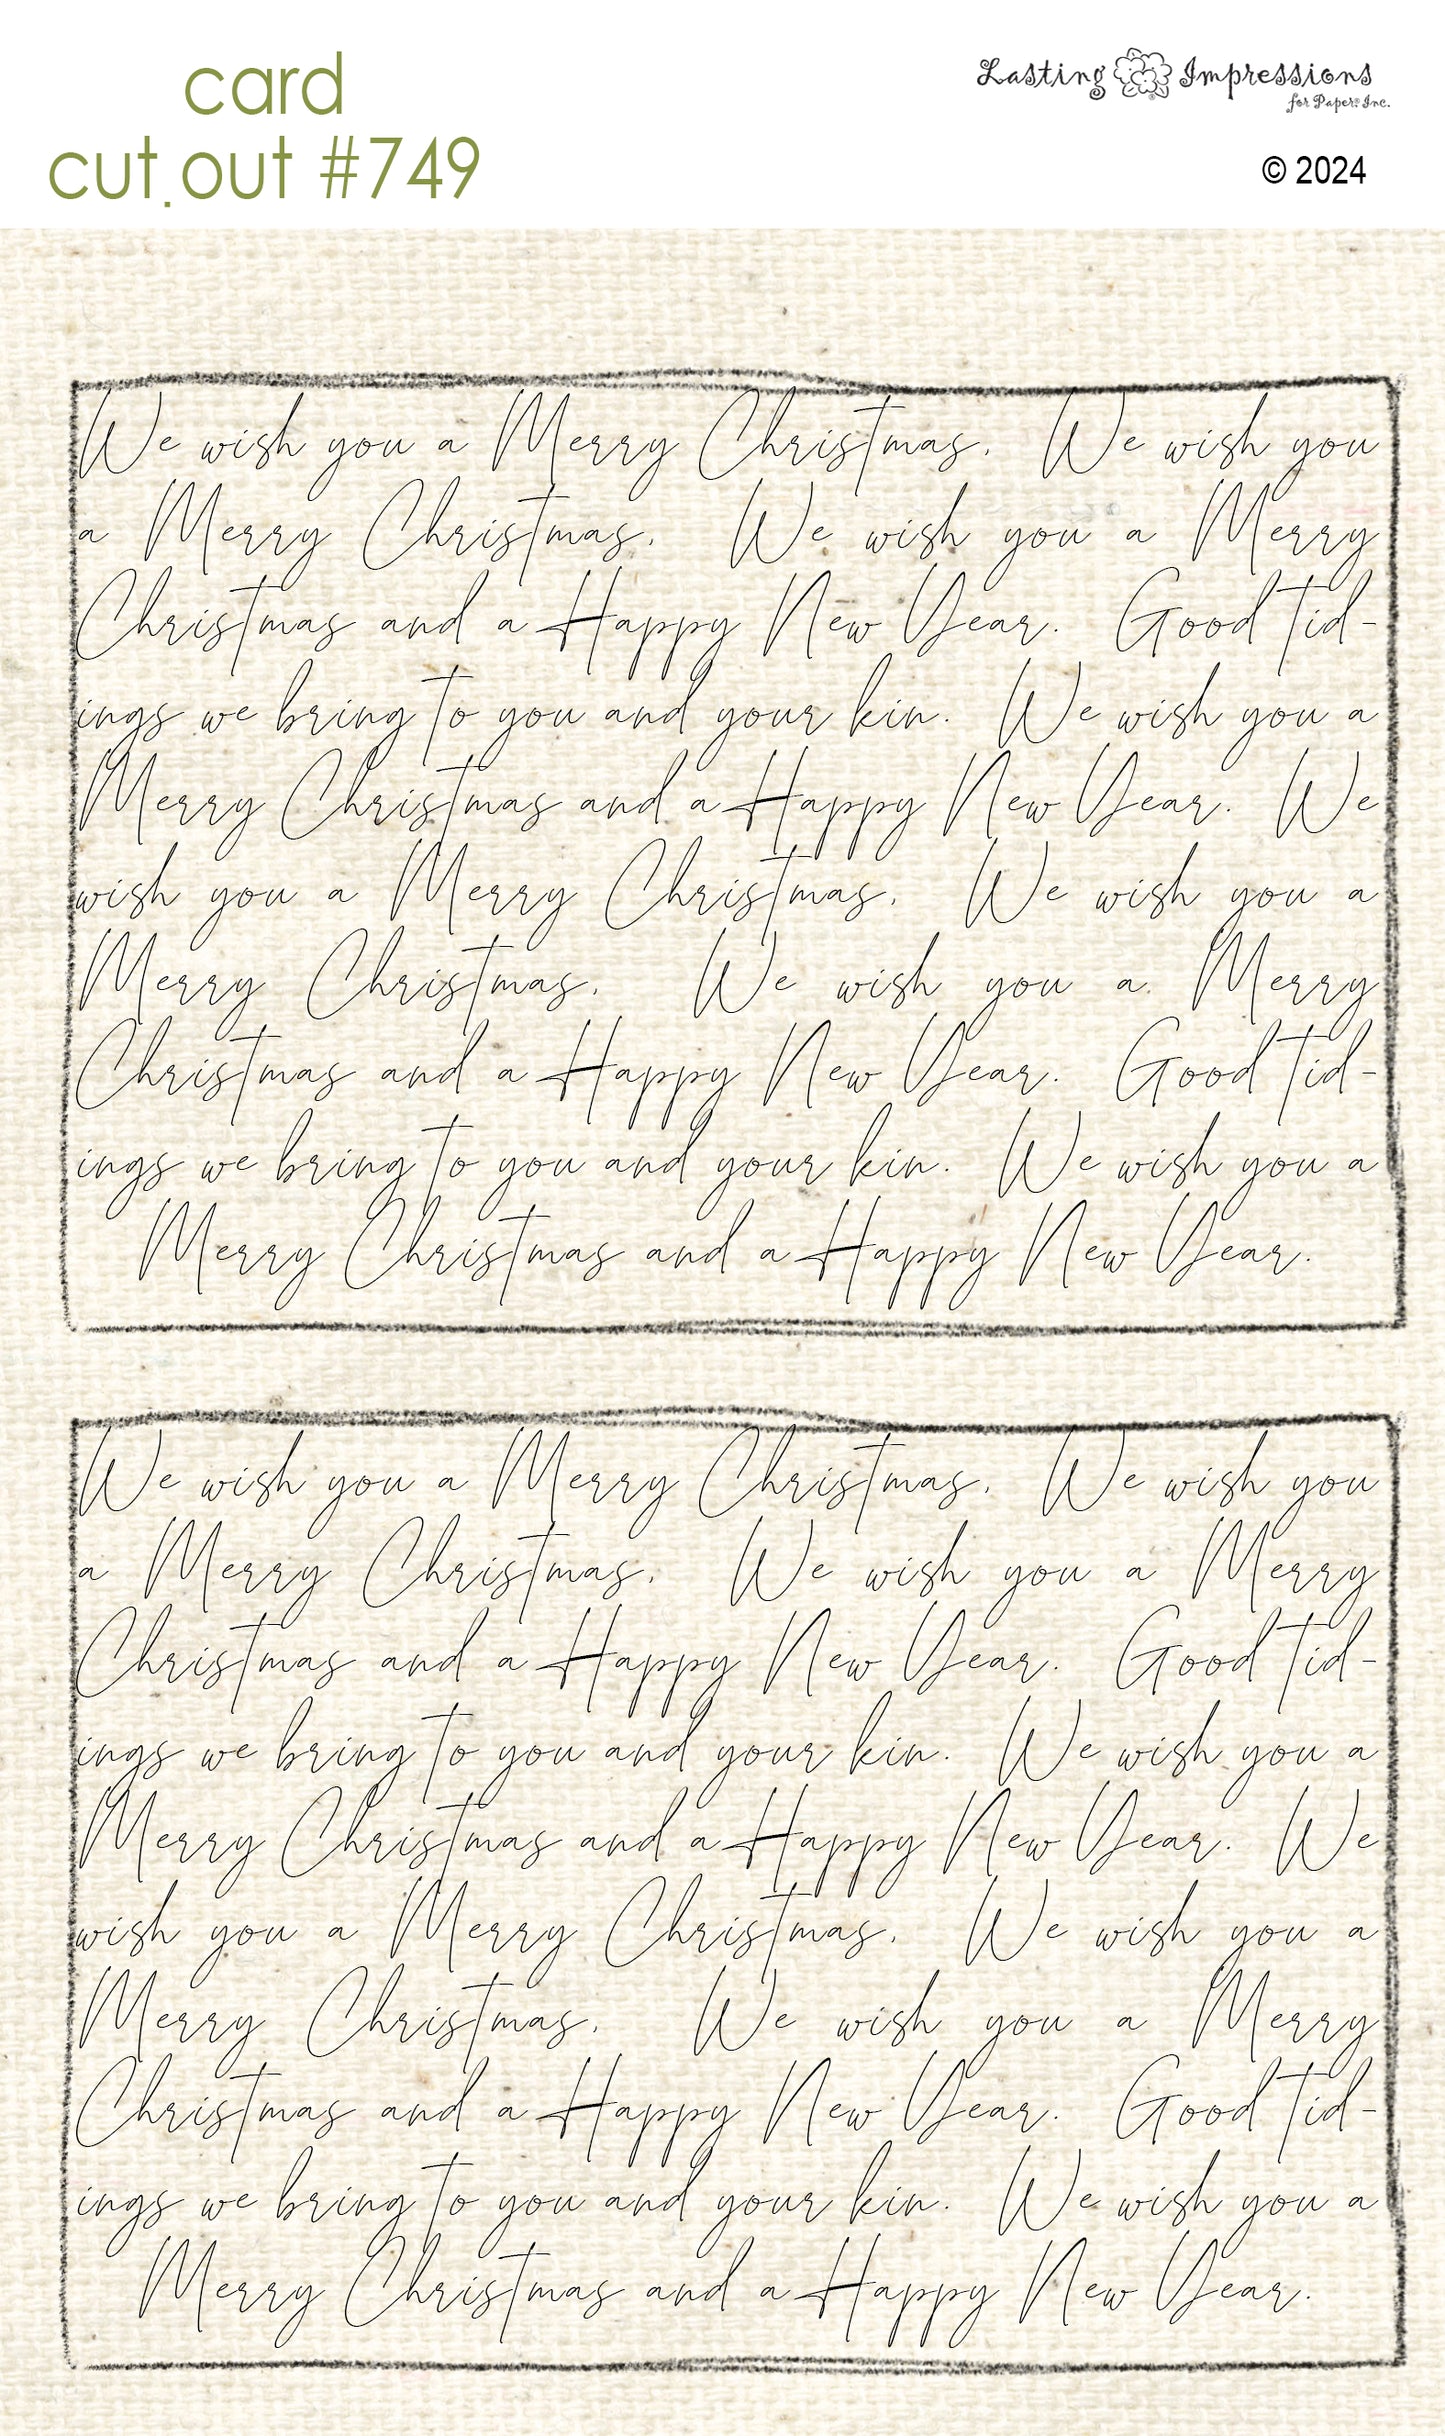 card
cut out #749
Lasting Impressions
for Paper, Inc.
© 2024
We wish you a Merry Christmas, We wish you
a Merry Christmas, We wish you a Merry
Christmas and a Happy New Year. Good tid-
ings we bring to you and your kin. We wish you a
Merry Christmas and a Happy New Year. We
wish you a Merry Christmas, We wish you a
Merry Christmas, We wish you a Merry
Christmas and a Happy New Year. Good tid-
ings we bring to you and your kin. We wish you a
Merry Christmas and a Happy New Year.
We wish you a Merry Christmas, We wish you
a Merry Christmas, We wish you a Merry
Christmas and a Happy New Year. Good tid-
ings we bring to you and your kin. We wish you a
Merry Christmas and a Happy New Year. We
wish you a Merry Christmas, We wish you a
Merry Christmas, We wish you a Merry
Christmas and a Happy New Year. Good tid-
ings we bring to you and your kin. We wish you a
Merry Christmas and a Happy New Year.